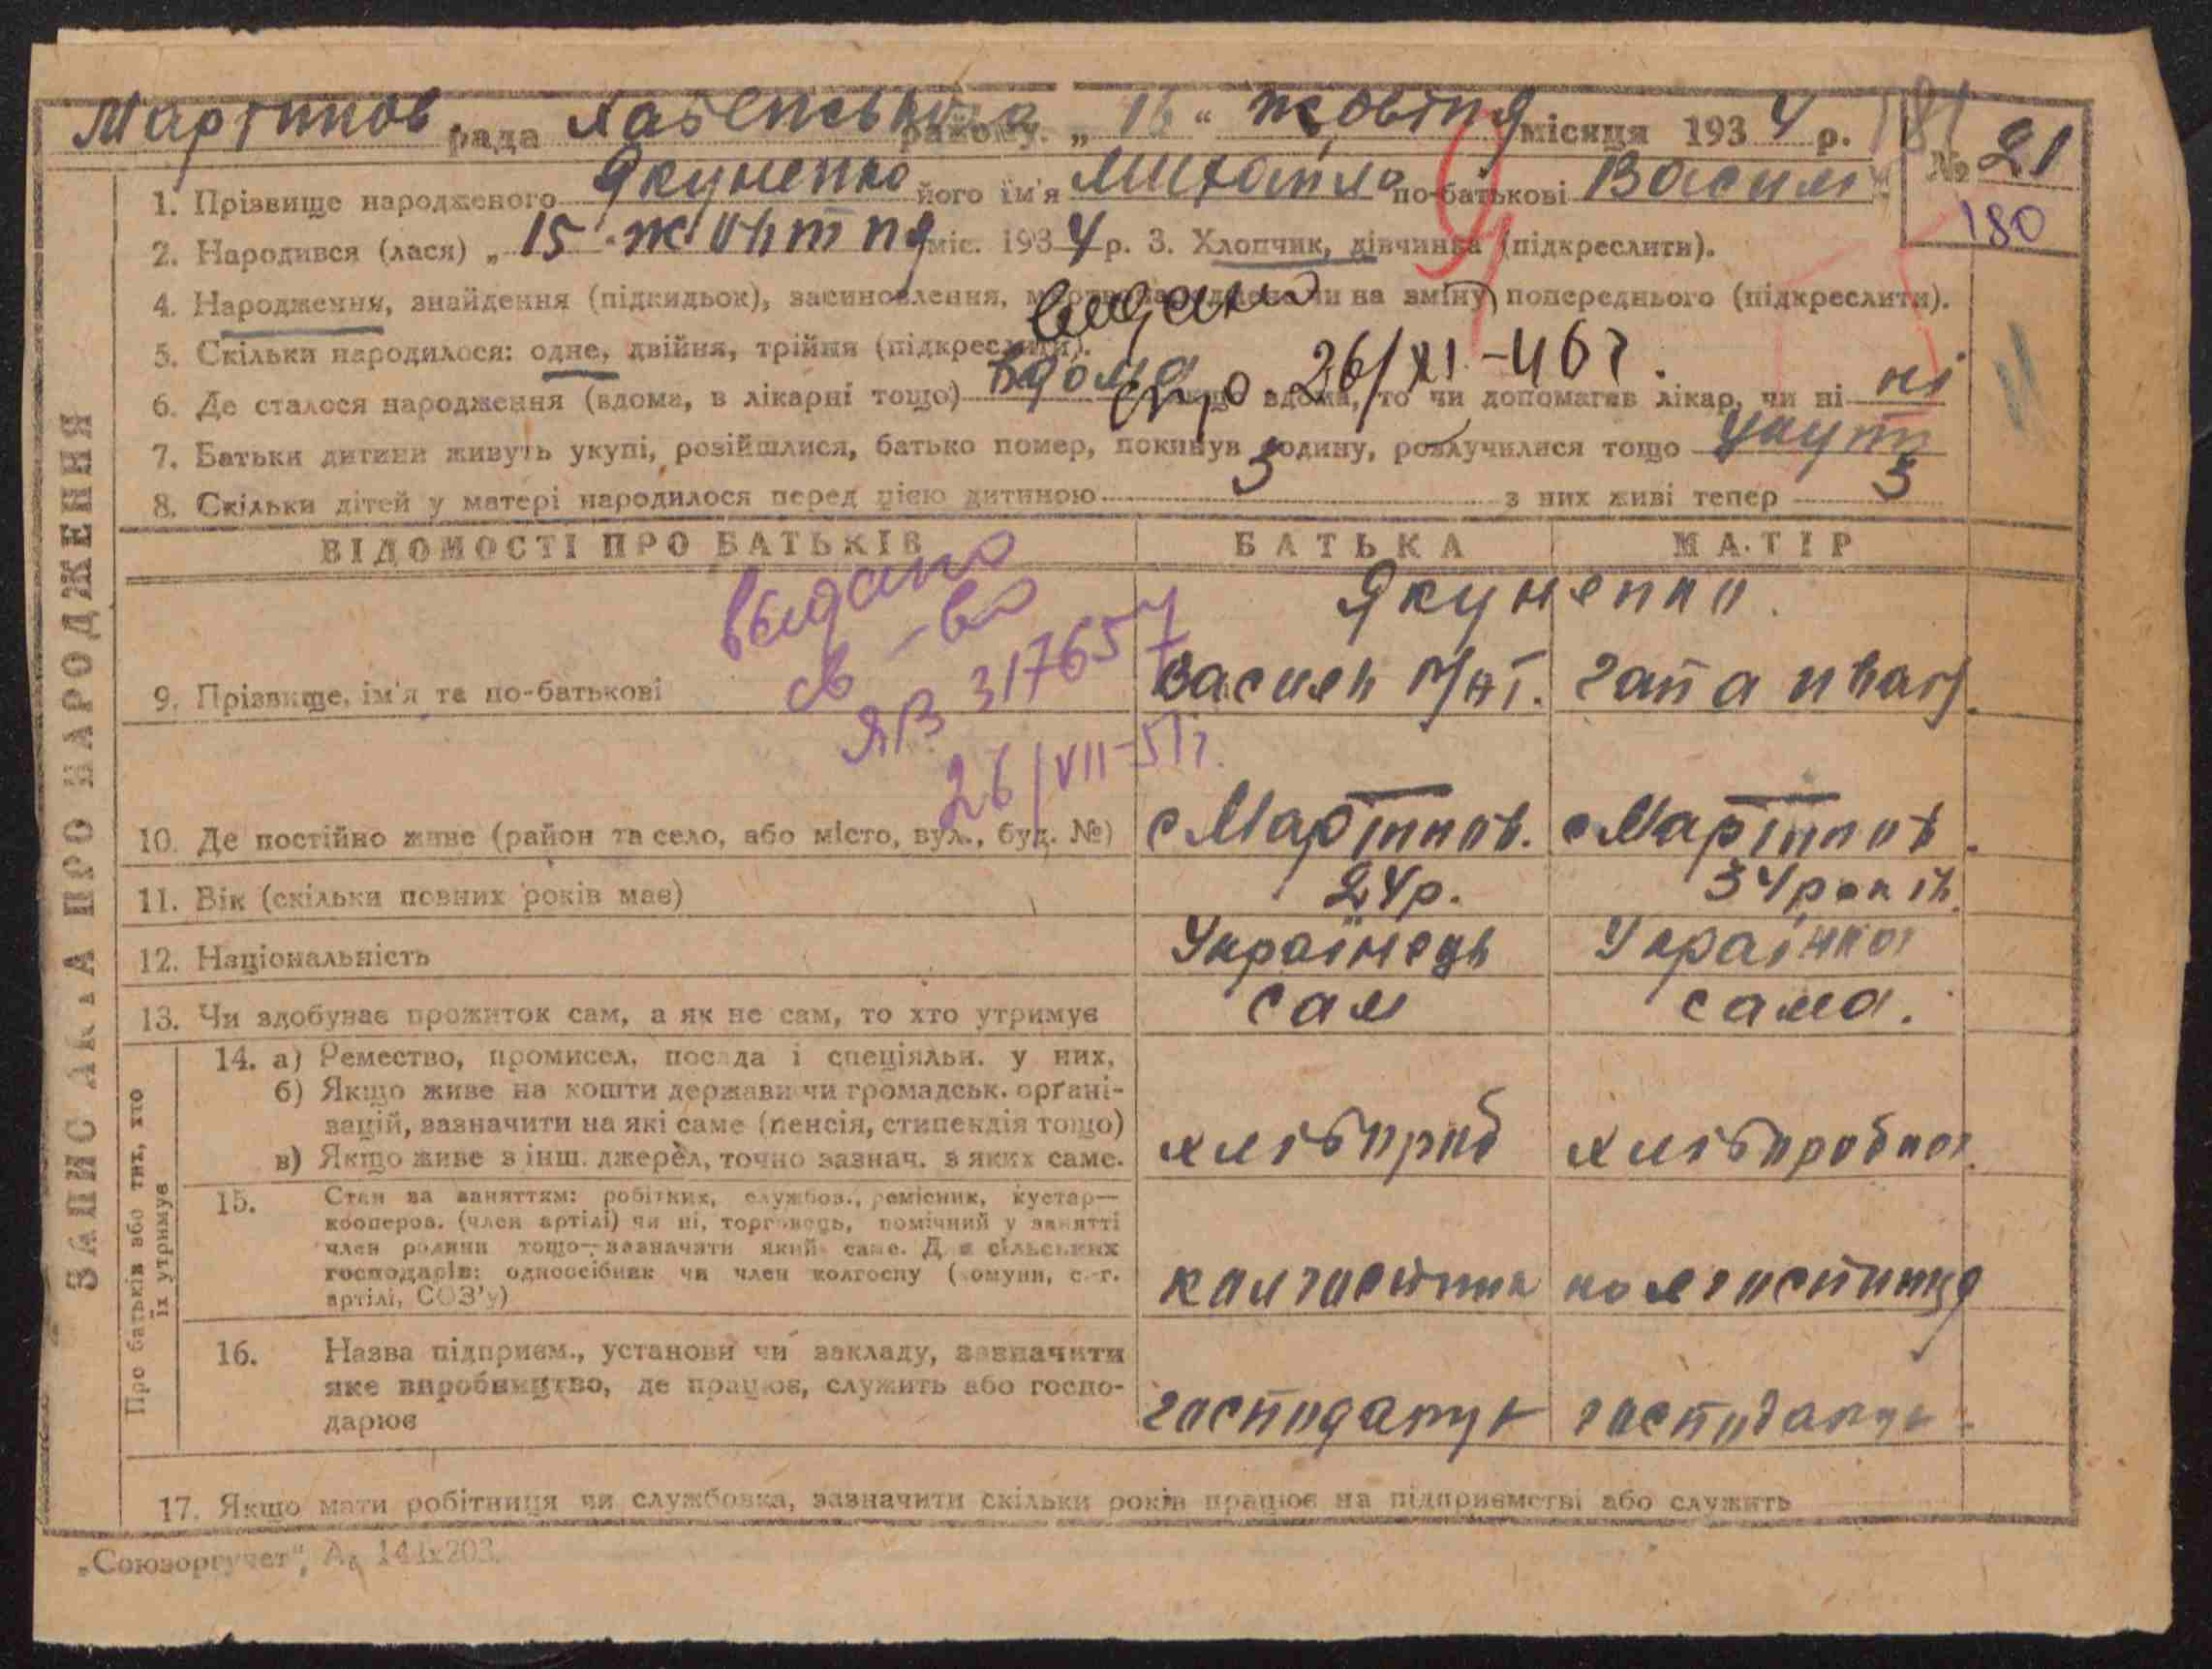 Мартинов. рада Хабенського району. „16“ жовтня місяця 1934 р. 181
№ 21
180
1. Прізвище народженого Якуненко його ім'я Михайло по-батькові Васил
2. Народився (лася) „15“ жовтня міс. 1934 р. 3. Хлопчик, дівчинка (підкреслити).
4. Народження, знайдення (підкидьок), засиновлення, чи на зміну попереднього (підкреслити).
видано
5. Скільки народилося: одне, двійня, трійня (підкреслити).
26/XI-46 г.
6. Де сталося народження (вдома, в лікарні тощо) вдома якщо вдома, то чи допомагав лікар, чи ні ні
7. Батьки дитини живуть укупі, розійшлися, батько помер, покинув родину, розлучилися тощо укупі
8. Скільки дітей у матері народилося перед цією дитиною 3 з них живі тепер 3
ЗАПИС АКТА ПРО НАРОДЖЕННЯ
ВІДОМОСТІ ПРО БАТЬКІВ БАТЬКА МАТІР
Якуненко.
выдано
св-во
ЯВ 317657
26/VII-51г.
9. Прізвище, ім'я та по-батькові Василь гапа иван
10. Де постійно живе (район та село, або місто, вул., буд. №) с Мартинов. с Мартинов.
11. Вік (скільки повних років має) 24р. 34років.
12. Національність Українець Українка
13. Чи здобуває прожиток сам, а як не сам, то хто утримує сам сама.
Про батьків або тих, хто їх утримує
14. а) Ремество, промисел, посада і спеціяльн. у них,
б) Якщо живе на кошти держави чи громадськ. орґані-
зацій, зазначити на які саме (пенсія, стипендія тощо)
в) Якщо живе з інш. джерел, точно зазнач. з яких саме. хлібороб хліборобка.
15. Стан за заняттям: робітник, службов., ремісник, кустар—
кооперов. (член артілі) чи ні, торговець, помічний у занятті
член родини тощо—зазначити який саме. Для сільських
господарів: одноосібник чи член колгоспу (комуни, с.-г.
артілі, СОЗ'у) колгоспник колгоспниця
16. Назва підприєм., установи чи закладу, зазначити
яке виробництво, де працює, служить або госпо-
дарює господарує господарує.
17. Якщо мати робітниця чи службовка, зазначити скільки років працює на підприємстві або служить
„Союзоргучет“, Ад 144х203.